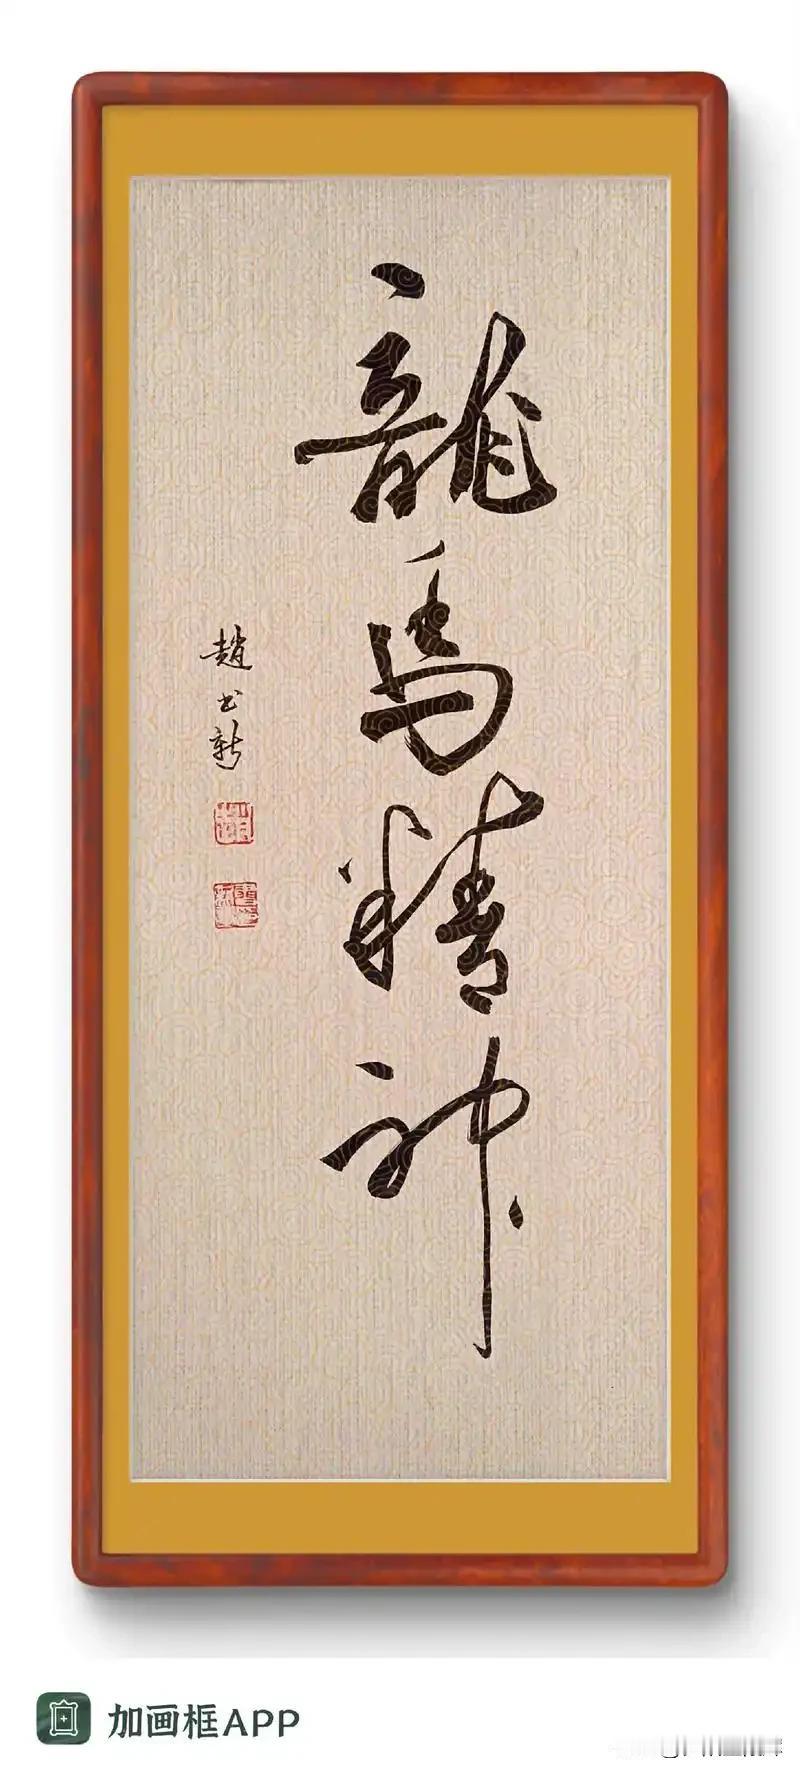 龍馬精神
趙书新
加画框APP